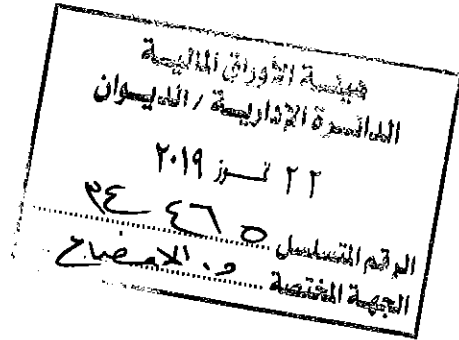 هيئة الأوراق المالية
الدائرة الإدارية / الديوان
٢٢ تموز ٢٠١٩
الرقم المتسلسل ٣٤٤٦٥
الجهة المختصة د. الافصاح